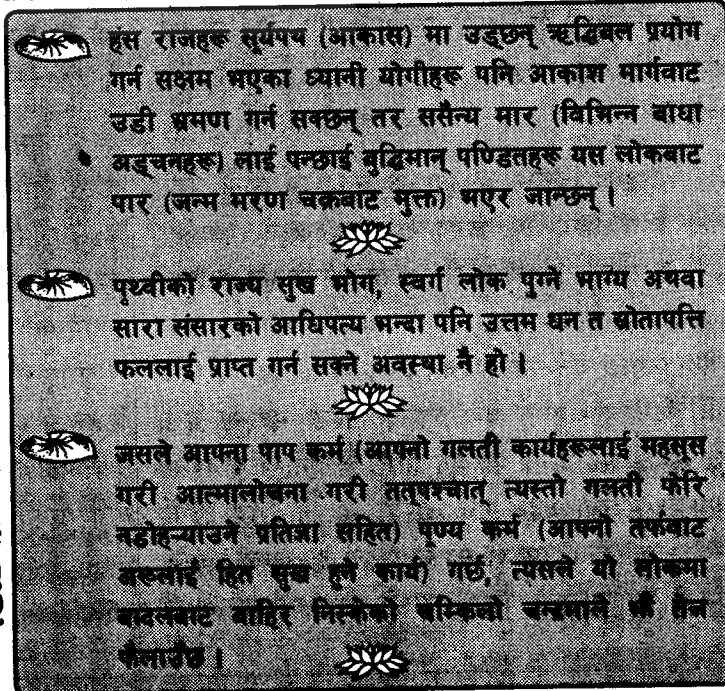 हंस राजहरू सूर्यपथ (आकास) मा उड्छन् ऋद्धिबल प्रयोग
गर्न सक्षम भएका ध्यानी योगीहरू पनि आकाश मार्गबाट
उडी भ्रमण गर्न सक्छन् तर ससैन्य मार (विभिन्न बाधा
अड्चनहरू) लाई पन्छाई बुद्धिमान् पण्डितहरू यस लोकबाट
पार (जन्म मरण चक्रबाट मुक्त) भएर जान्छन् ।
पृथ्वीको राज्य सुख भोग, स्वर्ग लोक पुग्ने भाग्य अथवा
सारा संसारको आधिपत्य भन्दा पनि उत्तम धन त स्रोतापत्ति
फललाई प्राप्त गर्न सक्ने अवस्था नै हो ।
जसले आफ्ना पाप कर्म (आफ्नो गलती कार्यहरूलाई महसुस
गरी आत्मालोचना गरी तत्पश्चात् त्यस्तो गलती फेरि
नदोहऱ्याउने प्रतिज्ञा सहित) पूण्य कर्म (आफ्नो तर्फबाट
अरुलाई हित सुख हुने कार्य) गर्छ, त्यसले यो लोकमा
बादलबाट बाहिर निस्केको चम्किलो चन्द्रमाले झैं तेज
फैलाउँछ ।